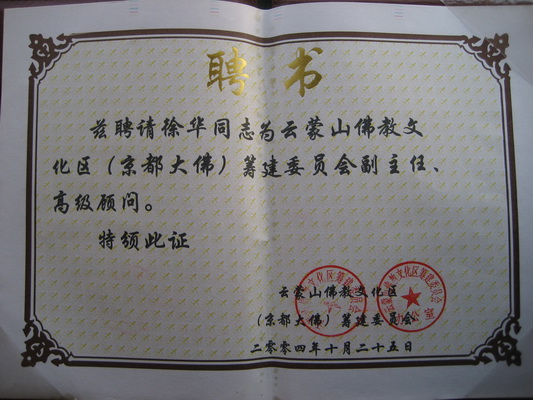 聘书
兹聘请徐华同志为云蒙山佛教文
化区（京都大佛）筹建委员会副主任、
高级顾问。
特颁此证
云蒙山佛教文化区
（京都大佛）筹建委员会
二零零四年十月二十五日